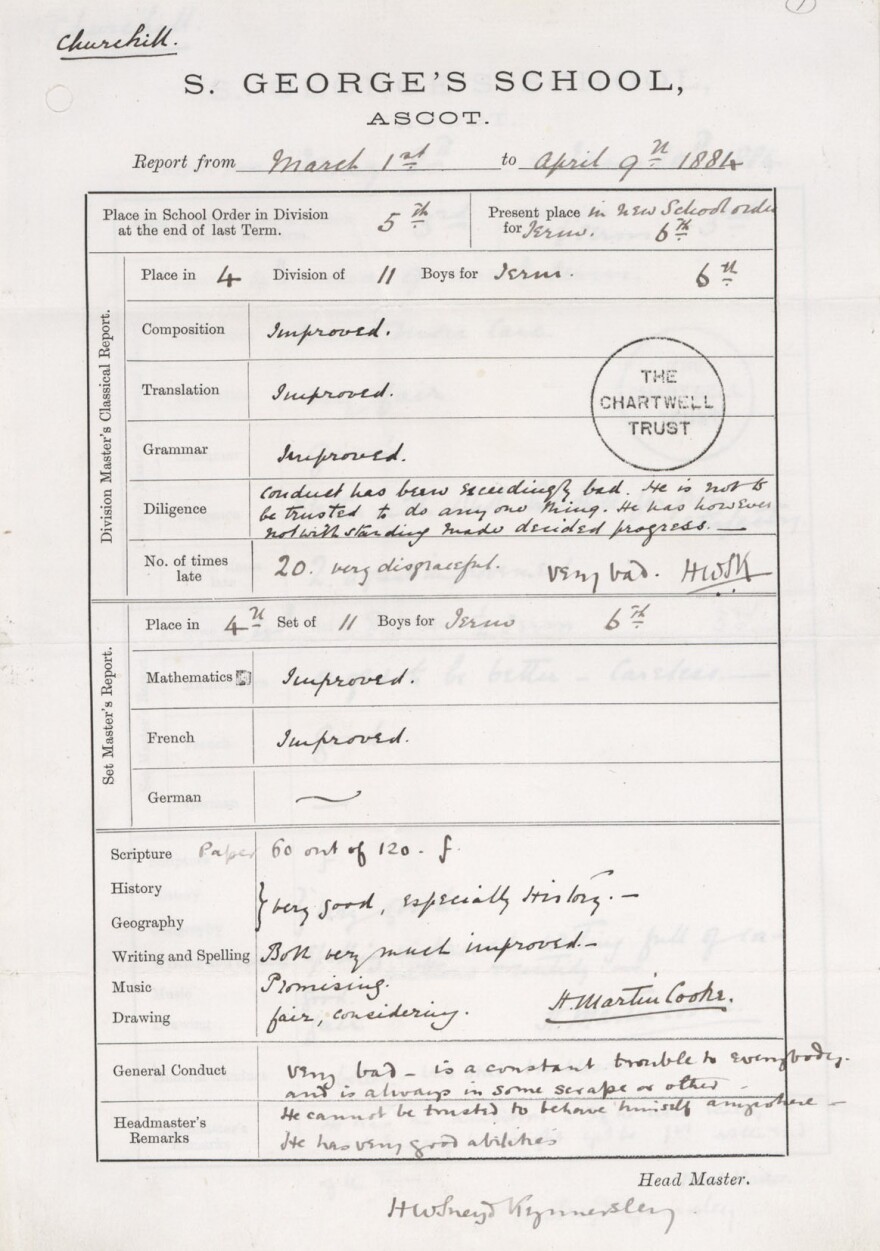 Churchill.
S. GEORGE'S SCHOOL,
ASCOT.
Report from March 1st to April 9th 1884
Place in School Order in Division
at the end of last Term.
5th
Present place in New School order
for Term. 6th
Division Master's Classical Report.
Place in 4 Division of 11 Boys for Term. 6th
Composition Improved.
Translation Improved.
Grammar Improved.
THE
CHARTWELL
TRUST
Diligence
Conduct has been exceedingly bad. He is not to
be trusted to do any one thing. He has however
notwithstanding made decided progress.
No. of times
late
20. very disgraceful. Very bad. HWSK
Set Master's Report.
Place in 4th Set of 11 Boys for Term 6th
Mathematics Improved.
French Improved.
German
Scripture Paper 60 out of 120. f.
History
Geography
very good, especially History. —
Writing and Spelling Both very much improved —
Music Promising.
Drawing fair, considering.
H. Martin Cooke.
General Conduct
Very bad — is a constant trouble to everybody.
and is always in some scrape or other —
Headmaster's
Remarks
He cannot be trusted to behave himself anywhere —
He has very good abilities
Head Master.
HWSneyd Kynnersley